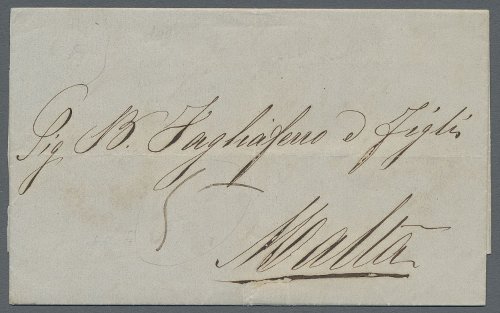 Sig B. Tagliaferro e Figli
5
Malta